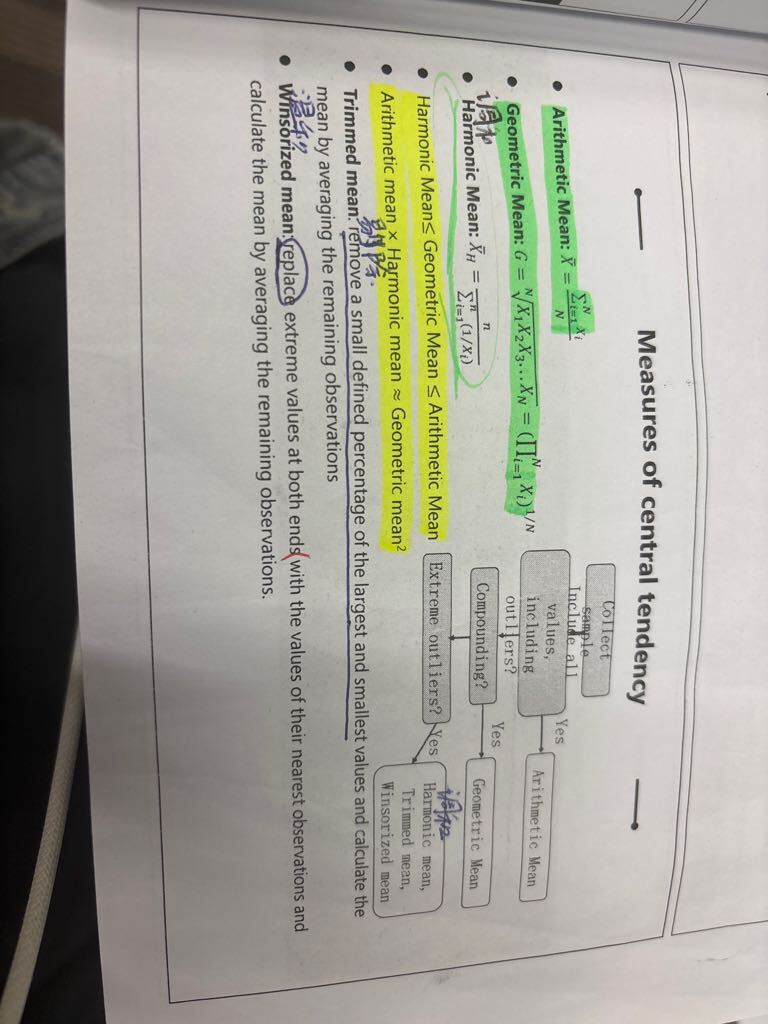 Measures of central tendency
Arithmetic Mean: X̄ = ∑ᵢ₌₁ᴺ Xᵢ / N
Geometric Mean: G = ᴺ√X₁X₂X₃…X_N = (∏ᵢ₌₁ᴺ Xᵢ)^1/N
调和
Harmonic Mean: X̄_H = n / ∑ᵢ₌₁ⁿ(1/xᵢ)
Harmonic Mean≤ Geometric Mean ≤ Arithmetic Mean
Arithmetic mean × Harmonic mean ≈ Geometric mean²
剔除
Trimmed mean: remove a small defined percentage of the largest and smallest values and calculate the
mean by averaging the remaining observations
Winsorized mean: replace extreme values at both ends with the values of their nearest observations and
calculate the mean by averaging the remaining observations.
Collect
sample
Include all
values,
including
outliers?
Yes
Arithmetic Mean
Compounding?
Yes
Geometric Mean
Extreme outliers?
Yes
调和
Harmonic mean,
Trimmed mean,
Winsorized mean